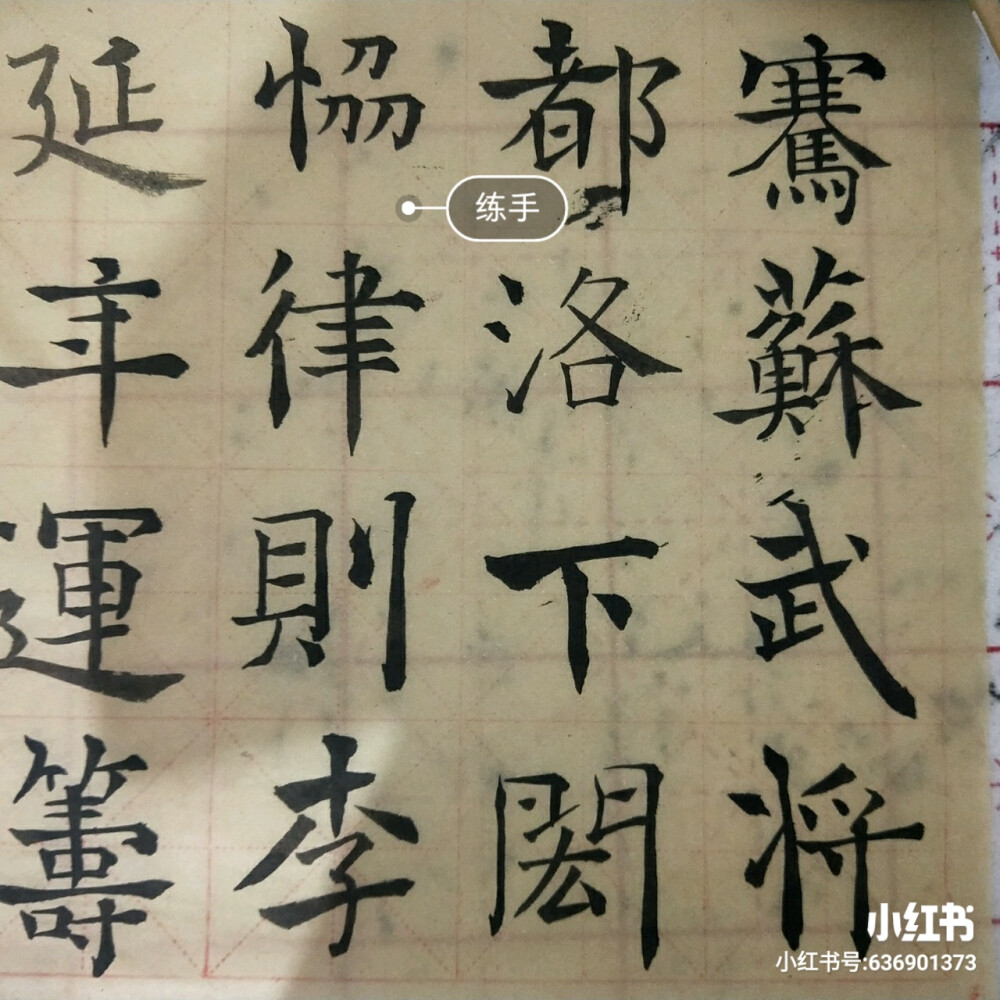 騫蘇武将
都洛下閎
恊律則李
延年運籌
练手
小红书
小红书号:636901373